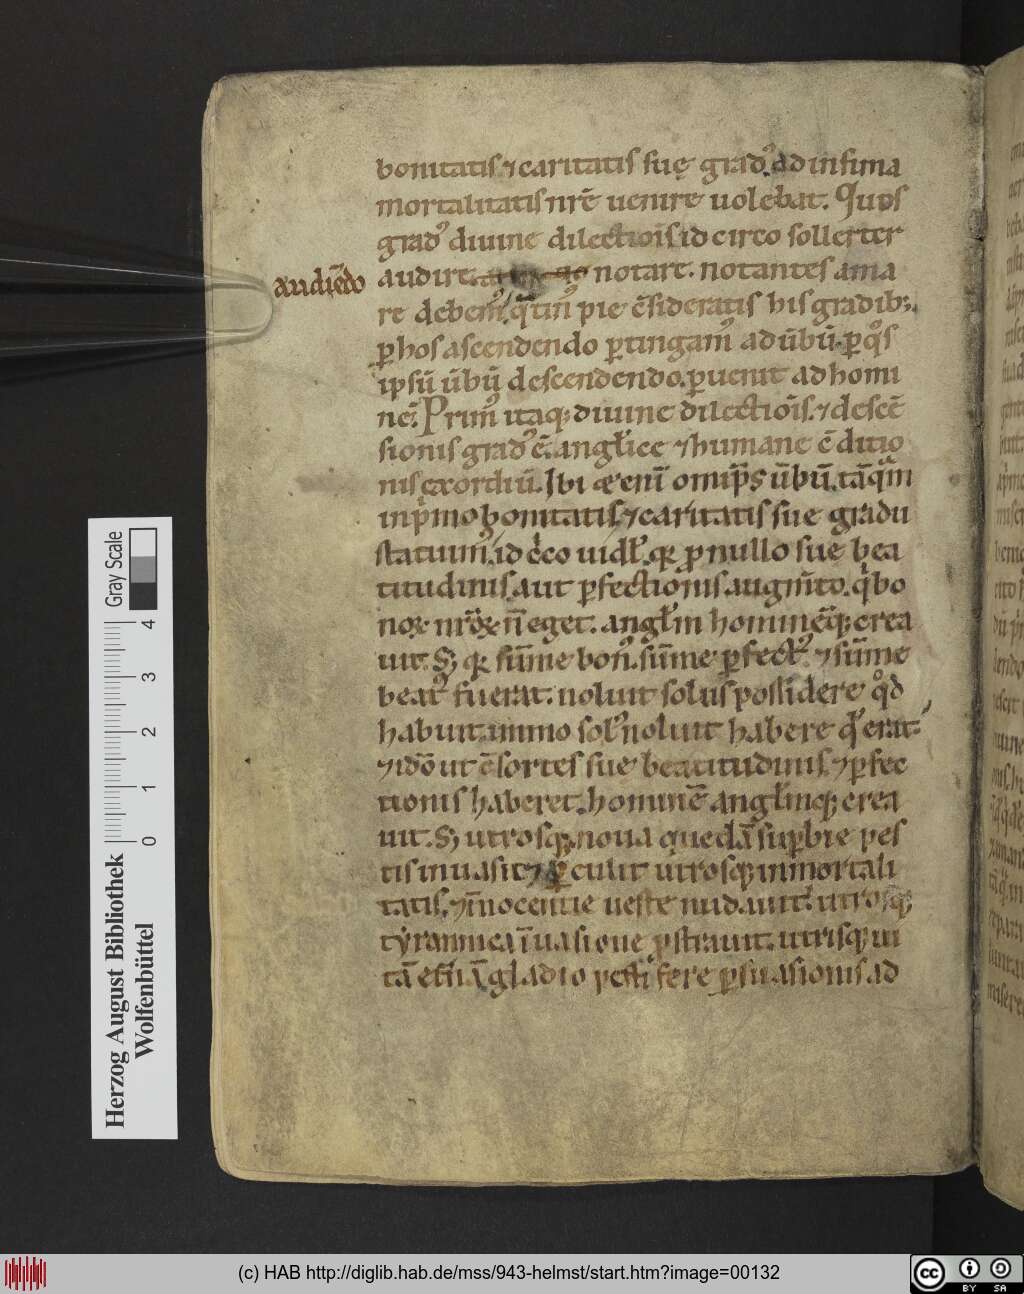 bonitatis ⁊ caritatis suę gradꝰ ad infima
mortalitatis nr̄e uenire uolebat. Quos
gradꝰ diuine dilectiōis id circo sollerter
audiēdo
audire. notare. notantes ama
re debemꝰ. q̄tinꝰ pie c̄sideratis his gradibꝫ.
ꝑ hos ascendendo ꝑtingamꝰ ad ūbū. ꝑ qͦs
ipsū ūbū descendendo. ꝑuenit ad homi
nē. Primꝰ itaqꝫ diuine dilectiōis. ⁊ descē
sionis gradꝰ ē. anglice ⁊ humane c̄ditio
nis exordiū. Ibi enī omip̄s ūbū. tāqͣm
in pͥmo bonitatis. ⁊ caritatis sue gradu
statuimꝰ. id cͥco uidꝫ. qꝛ pro nullo sue bea
titudinis. aut ꝑfectionis augm̄to. qͥ bo
noꝝ nr̄oꝝ n̄ eget. anglm hominēqꝫ crea
uit. Sꝫ qꝛ sūme bonꝰ. sūme ꝑfectꝰ. ⁊ sūme
beatꝰ fuerat. noluit solus possidere qͦd
habuit. immo solꝰ noluit habere qͥ erat.
⁊ idō ut c̄sortes sue beatitudinis. ⁊ ꝑfec
tionis haberet. hominē anglmqꝫ crea
uit. Sꝫ utrosqꝫ. noua quedā suꝑbie pes
tis inuasit. ⁊ ꝑculit utrosqꝫ inmortali
tatis. ⁊ īnocentie ueste nudauit. utrosqꝫ
tyrannica īuasione ꝓstrauit. utrisqꝫ ui
tā etͥnā gladio pestifere ꝑsuasionis ad
Gray Scale
0 1 2 3 4
Herzog August Bibliothek
Wolfenbüttel
(c) HAB http://diglib.hab.de/mss/943-helmst/start.htm?image=00132
cc BY SA